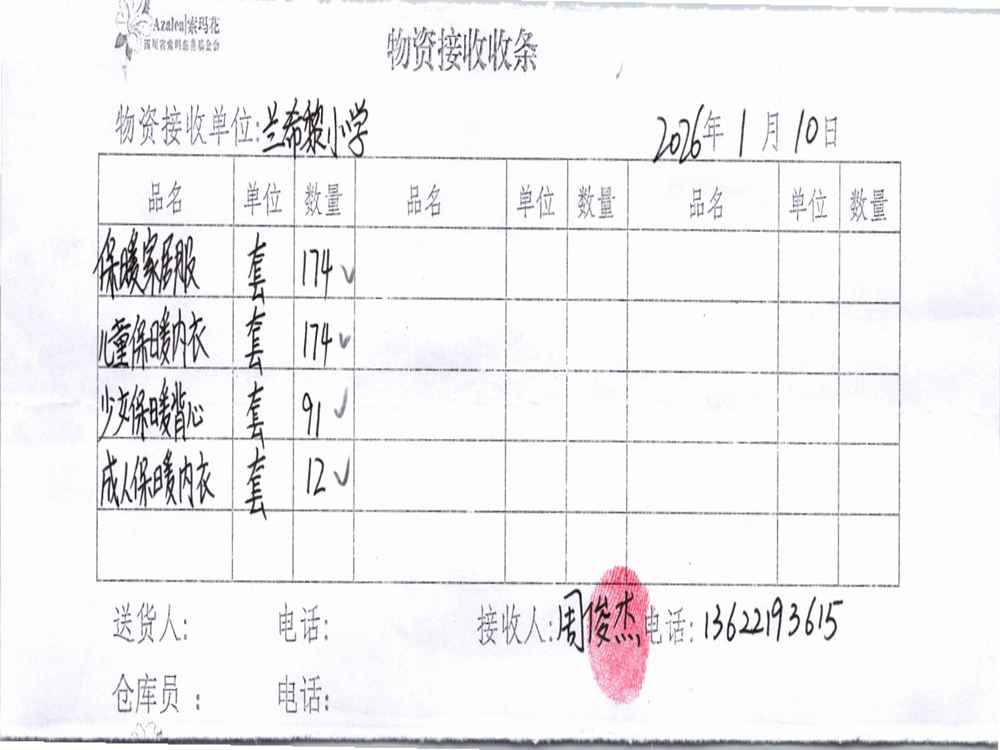 Azalea|索玛花
四川省索玛慈善基金会
物资接收收条
物资接收单位:兰希黎小学 2026年1月10日
品名 单位 数量 品名 单位 数量 品名 单位 数量
保暖家居服 套 174 ✓
儿童保暖内衣 套 174 ✓
少女保暖背心 套 91 ✓
成人保暖内衣 套 12 ✓
送货人: 电话: 接收人:周俊杰 电话:13622193615
仓库员: 电话: